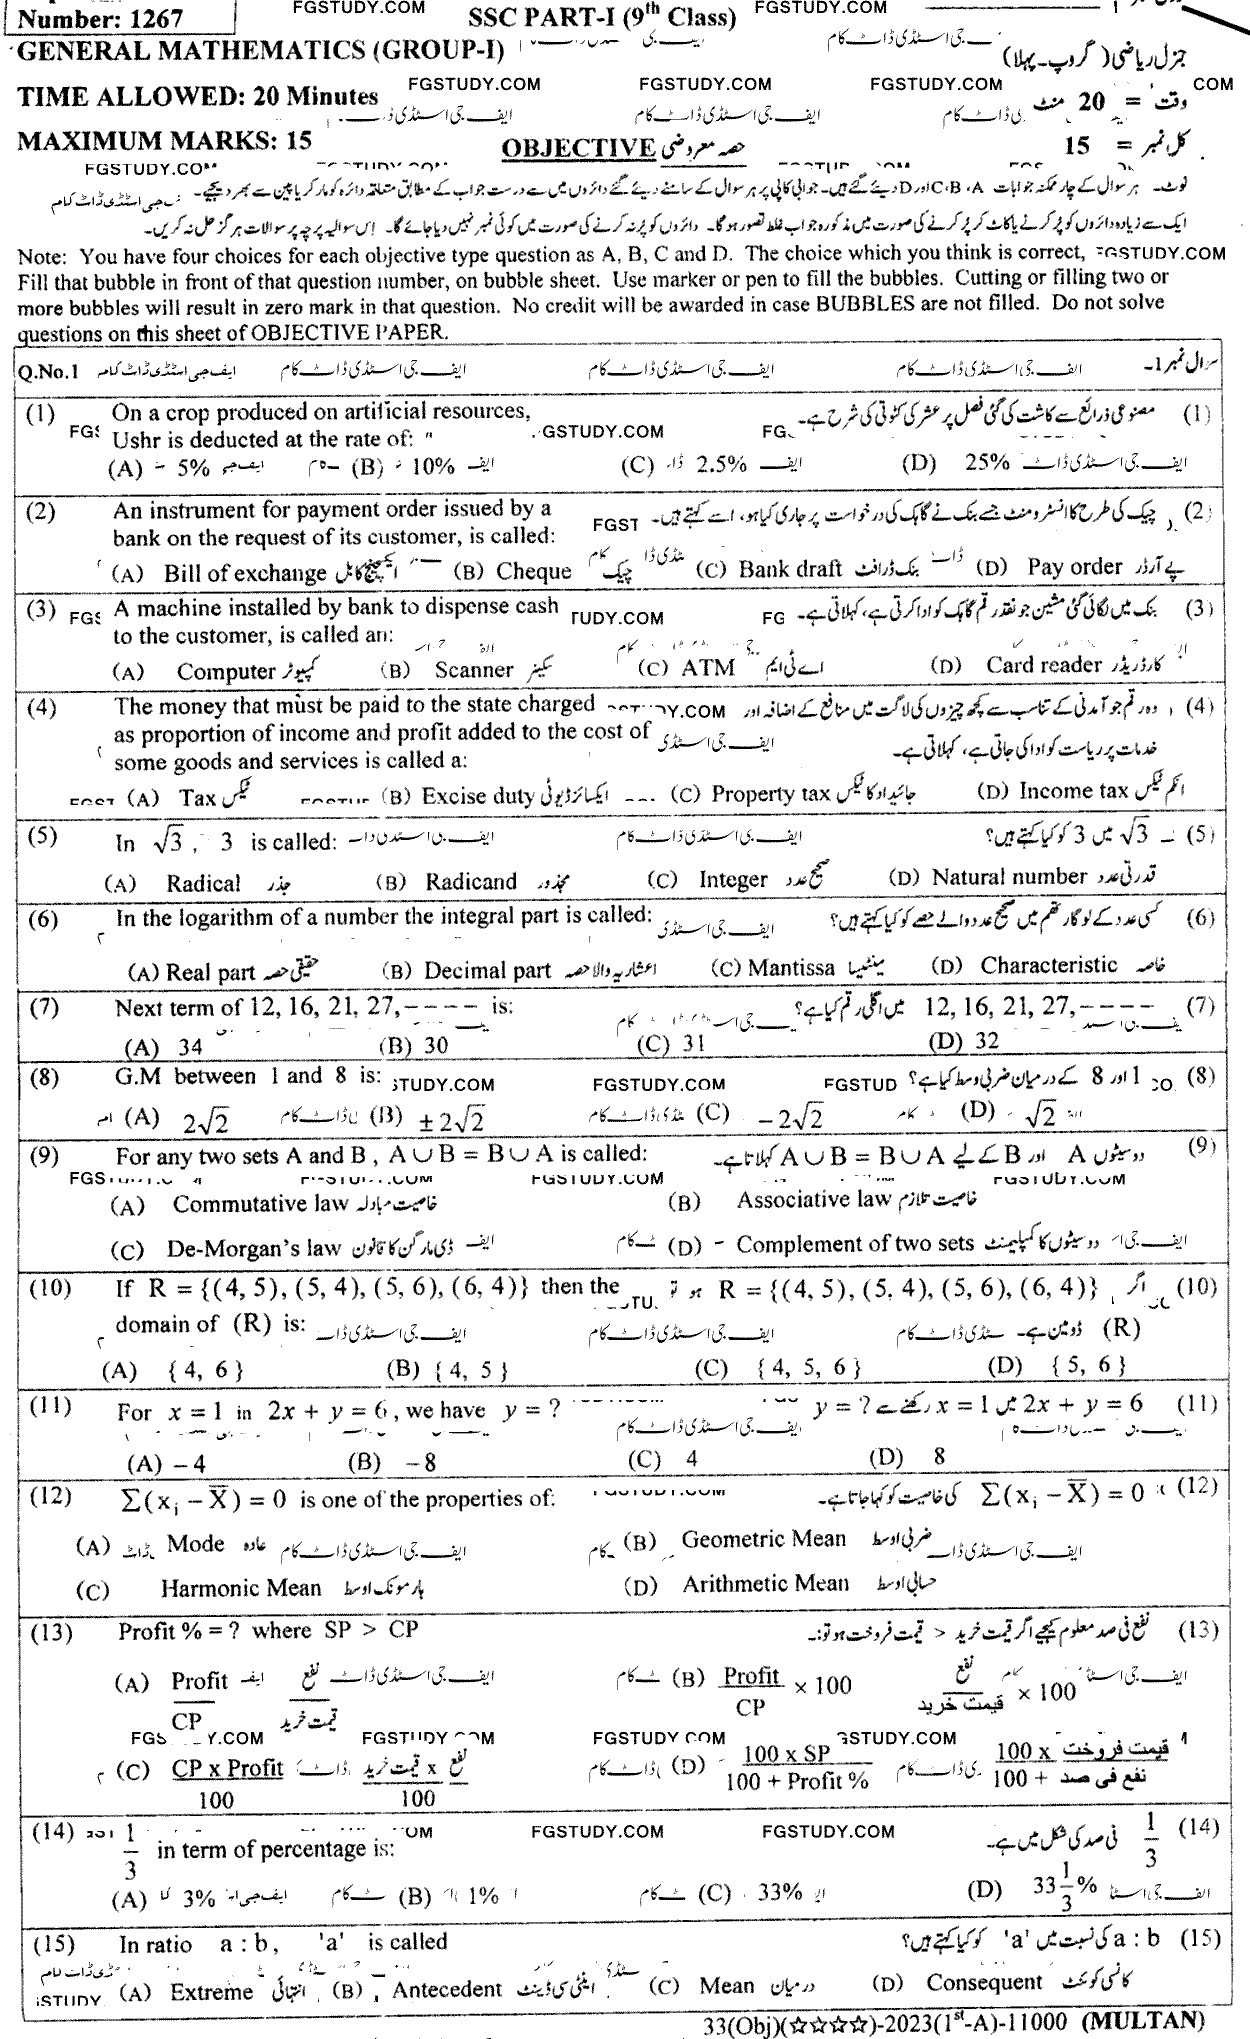 Number: 1267
FGSTUDY.COM SSC PART-I (9th Class) FGSTUDY.COM
GENERAL MATHEMATICS (GROUP-I) جنرل ریاضی (گروپ۔پہلا)
FGSTUDY.COM FGSTUDY.COM FGSTUDY.COM COM
TIME ALLOWED: 20 Minutes وقت = 20 منٹ
MAXIMUM MARKS: 15 OBJECTIVE حصہ معروضی کل نمبر = 15
نوٹ۔ ہر سوال کے چار ممکنہ جوابات A، B، C اور D دیئے گئے ہیں۔ جوابی کاپی پر ہر سوال کے سامنے دیئے گئے دائروں میں سے درست جواب کے مطابق متعلقہ دائرہ کو مارکر یا پین سے بھر دیجئے۔
ایک سے زیادہ دائروں کو پُر کرنے یا کاٹ کر پُر کرنے کی صورت میں مذکورہ جواب غلط تصور ہوگا۔ دائروں کو پُر نہ کرنے کی صورت میں کوئی نمبر نہیں دیا جائے گا۔ اِس سوالیہ پرچہ پر سوالات ہرگز حل نہ کریں۔
Note: You have four choices for each objective type question as A, B, C and D. The choice which you think is correct, FGSTUDY.COM
Fill that bubble in front of that question number, on bubble sheet. Use marker or pen to fill the bubbles. Cutting or filling two or
more bubbles will result in zero mark in that question. No credit will be awarded in case BUBBLES are not filled. Do not solve
questions on this sheet of OBJECTIVE PAPER.
Q.No.1 ایف جی اسٹڈی ڈاٹ کام ایف جی اسٹڈی ڈاٹ کام ایف جی اسٹڈی ڈاٹ کام ایف جی اسٹڈی ڈاٹ کام سوال نمبر 1۔
(1) On a crop produced on artificial resources, مصنوعی ذرائع سے کاشت کی گئی فصل پر عشر کی کٹوتی کی شرح ہے۔ (1)
Ushr is deducted at the rate of:
(A) 5% (B) 10% (C) 2.5% (D) 25%
(2) An instrument for payment order issued by a چیک کی طرح کا انسٹرومنٹ جسے بنک نے گاہک کی درخواست پر جاری کیا ہو، اسے کہتے ہیں۔ (2)
bank on the request of its customer, is called:
(A) Bill of exchange ایکسچینج کابل (B) Cheque چیک (C) Bank draft بنک ڈرافٹ (D) Pay order پے آرڈر
(3) A machine installed by bank to dispense cash بنک میں لگائی گئی مشین جو نقد رقم گاہک کو ادا کرتی ہے، کہلاتی ہے۔ (3)
to the customer, is called an:
(A) Computer کمپیوٹر (B) Scanner سکینر (C) ATM اے ٹی ایم (D) Card reader کارڈ ریڈر
(4) The money that must be paid to the state charged وہ رقم جو آمدنی کے تناسب سے کچھ چیزوں کی لاگت میں منافع کے اضافہ اور (4)
as proportion of income and profit added to the cost of خدمات پر ریاست کو ادا کی جاتی ہے، کہلاتی ہے۔
some goods and services is called a:
(A) Tax ٹیکس (B) Excise duty ایکسائز ڈیوٹی (C) Property tax جائیداد کا ٹیکس (D) Income tax انکم ٹیکس
(5) In √3, 3 is called: √3 میں 3 کو کیا کہتے ہیں؟ (5)
(A) Radical جذر (B) Radicand مجذور (C) Integer صحیح عدد (D) Natural number قدرتی عدد
(6) In the logarithm of a number the integral part is called: کسی عدد کے لوگارتھم میں صحیح عدد والے حصے کو کیا کہتے ہیں؟ (6)
(A) Real part حقیقی حصہ (B) Decimal part اعشاریہ والا حصہ (C) Mantissa مینٹیسا (D) Characteristic خاصہ
(7) Next term of 12, 16, 21, 27, ---- is: 12, 16, 21, 27, ---- میں اگلی رقم کیا ہے؟ (7)
(A) 34 (B) 30 (C) 31 (D) 32
(8) G.M between 1 and 8 is: 1 اور 8 کے درمیان ضربی وسط کیا ہے؟ (8)
(A) 2√2 (B) ±2√2 (C) −2√2 (D) √2
(9) For any two sets A and B, A∪B = B∪A is called: دو سیٹوں A اور B کے لیے A∪B = B∪A کہلاتا ہے۔ (9)
(A) Commutative law خاصیت مبادلہ (B) Associative law خاصیت تلازم
(C) De-Morgan's law ڈی مارگن کا قانون (D) Complement of two sets دو سیٹوں کا کمپلیمنٹ
(10) If R = {(4, 5), (5, 4), (5, 6), (6, 4)} then the اگر R = {(4, 5), (5, 4), (5, 6), (6, 4)} ہو تو (10)
domain of (R) is: (R) ڈومین ہے۔
(A) {4, 6} (B) {4, 5} (C) {4, 5, 6} (D) {5, 6}
(11) For x = 1 in 2x + y = 6, we have y = ? 2x + y = 6 میں x = 1 رکھنے سے y = ? (11)
(A) −4 (B) −8 (C) 4 (D) 8
(12) Σ(xi − X̄) = 0 is one of the properties of: Σ(xi − X̄) = 0 کی خاصیت کو کہا جاتا ہے۔ (12)
(A) Mode عادہ (B) Geometric Mean ضربی اوسط
(C) Harmonic Mean ہارمونک اوسط (D) Arithmetic Mean حسابی اوسط
(13) Profit % = ? where SP > CP نفع فی صد معلوم کیجیے اگر قیمت خرید < قیمت فروخت ہو تو:۔ (13)
(A) Profit/CP نفع/قیمت خرید (B) Profit/CP × 100 نفع/قیمت خرید × 100
FGSTUDY.COM FGSTUDY.COM
(C) CP x Profit/100 نفع x قیمت خرید/100 (D) 100 x SP/100 + Profit % 100 x قیمت فروخت/100 + نفع فی صد
(14) 1/3 in term of percentage is: FGSTUDY.COM FGSTUDY.COM 1/3 فی صد کی شکل میں ہے۔ (14)
(A) 3% (B) 1% (C) 33% (D) 33 1/3 %
(15) In ratio a : b, 'a' is called a : b کی نسبت میں 'a' کو کیا کہتے ہیں؟ (15)
(A) Extreme انتہائی (B) Antecedent اینٹی سی ڈینٹ (C) Mean درمیان (D) Consequent کانسی کوئنٹ
33(Obj)(☆☆☆☆)-2023(1st-A)-11000 (MULTAN)